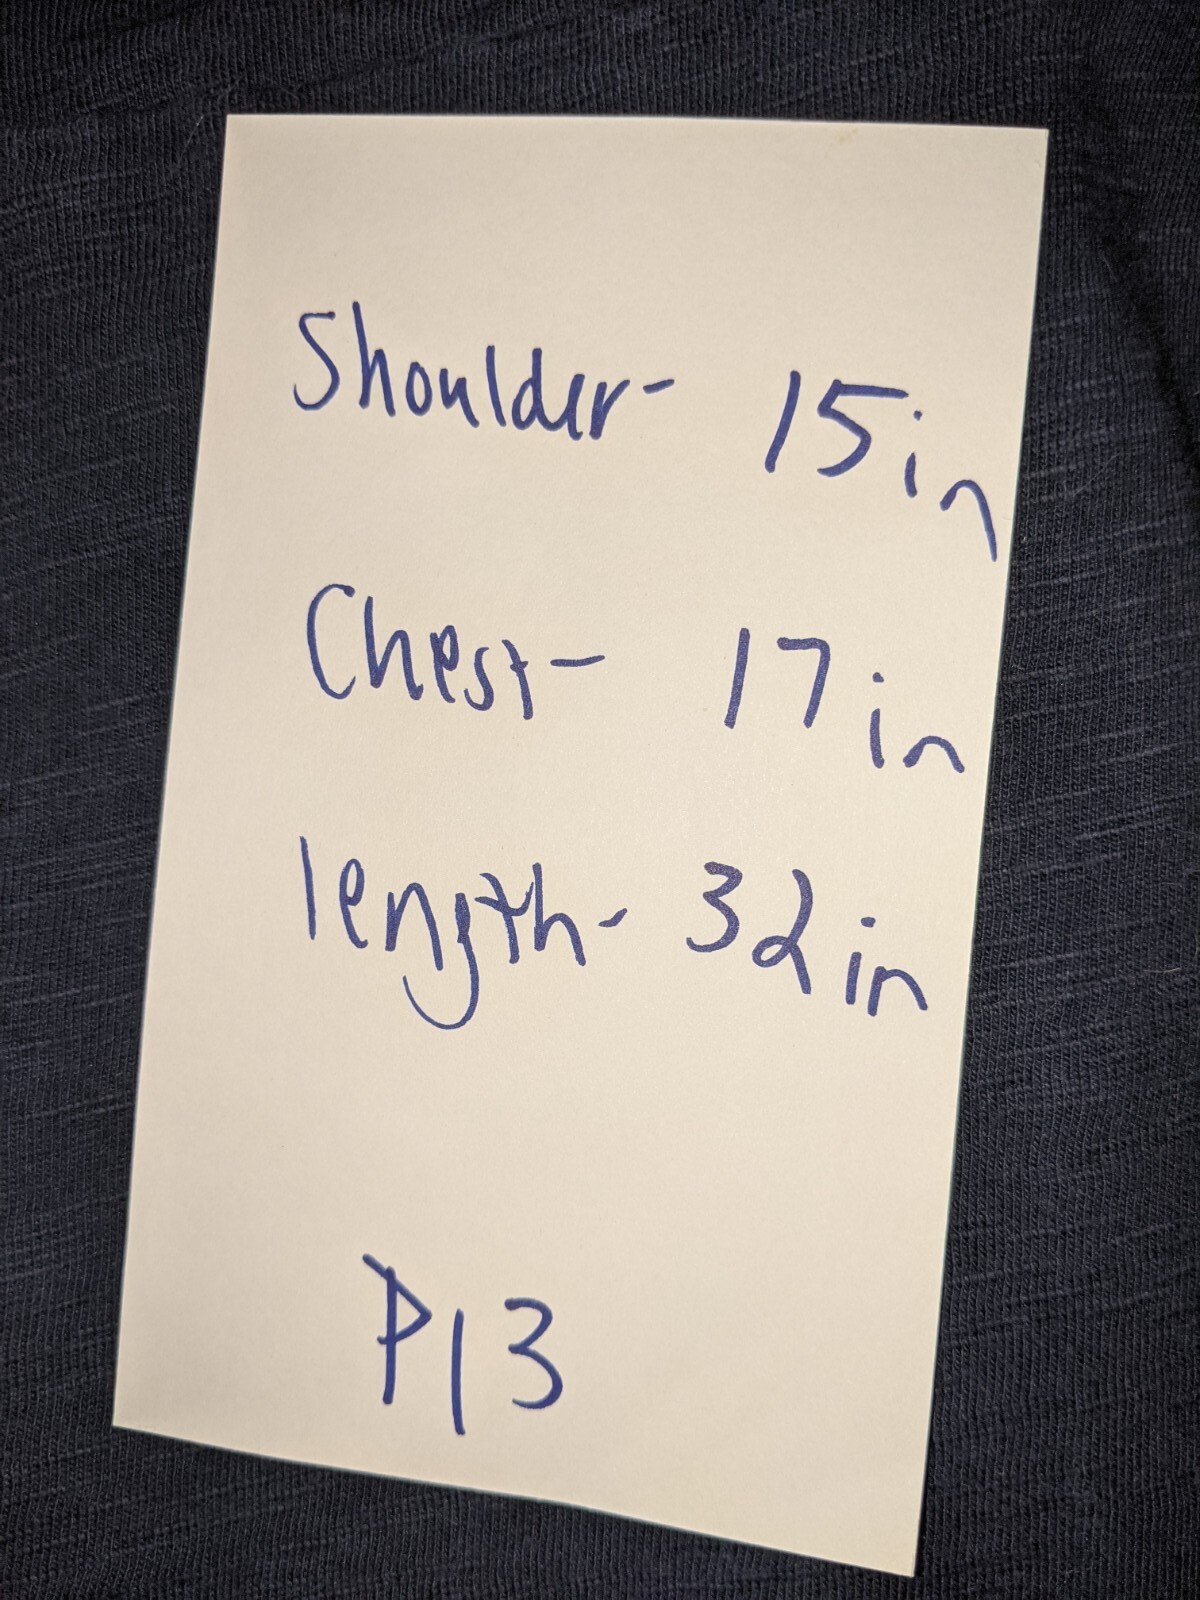 Shoulder- 15in
Chest- 17in
length- 32in
P13